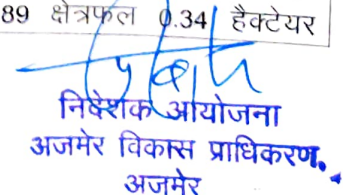 89 क्षेत्रफल 0.34 हैक्टेयर
निदेशक आयोजना
अजमेर विकास प्राधिकरण.
अजमेर